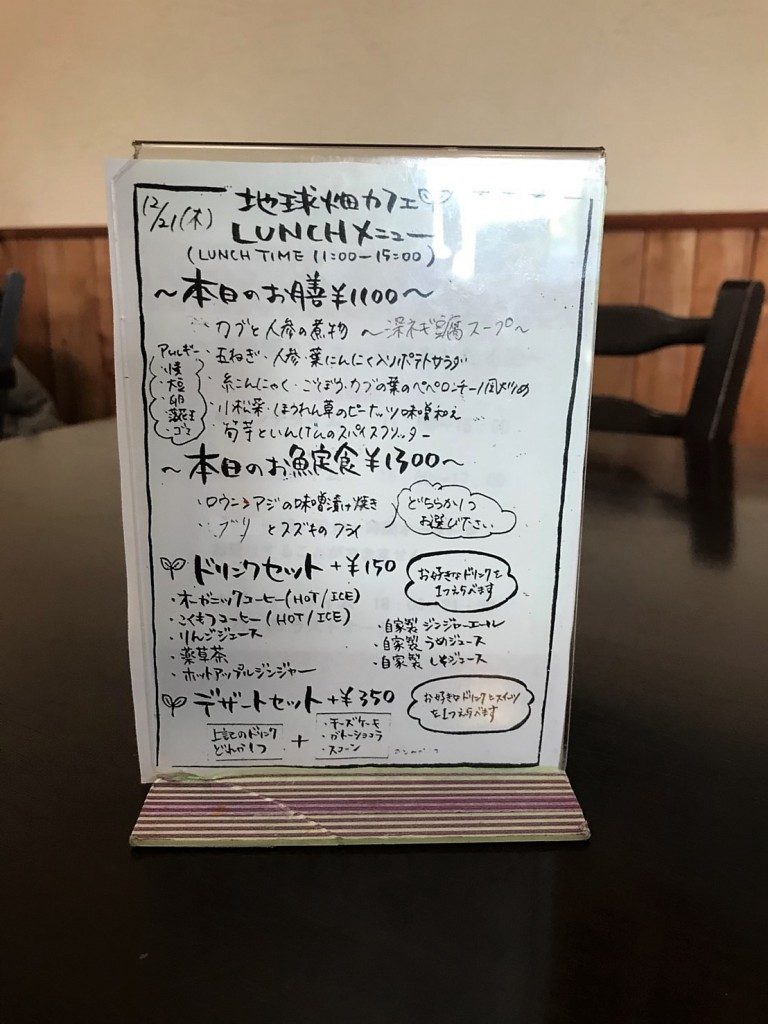 12/21(木)
地球畑カフェ
LUNCHメニュー
(LUNCH TIME 11:00-15:00)
～本日のお膳¥1100～
・カブと人参の煮物 ～深ネギ豆腐スープ～
アレルギー
・大豆
・卵
・ゴマ
・玉ねぎ・人参・葉にんにく入りポテトサラダ
・糸こんにゃく・ごぼう・カブの葉のペペロンチーノ風炒め
・小松菜・ほうれん草のピーナッツ味噌和え
・筍芋といんげんのスパイスフリッター
～本日のお魚定食¥1300～
・ロウニンアジの味噌漬け焼き
・ブリとスズキのフライ
どちらか1つ
お選び下さい
ドリンクセット+¥150
お好きなドリンクを
1つえらべます
・オーガニックコーヒー(HOT/ICE)
・こくもつコーヒー(HOT/ICE)
・りんごジュース
・薬草茶
・ホットアップルジンジャー
・自家製 ジンジャーエール
・自家製 うめジュース
・自家製 しそジュース
デザートセット+¥350
お好きなドリンクとスイーツ
を1つえらべます
上記のドリンク
どれか1つ
+
・チーズケーキ
・ガトーショコラ
・スコーン